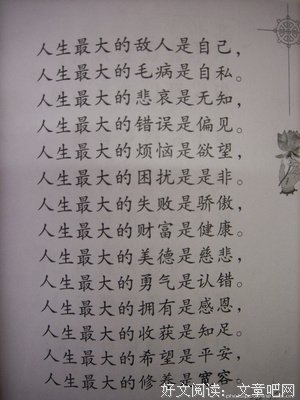 人生最大的敌人是自己，
人生最大的毛病是自私。
人生最大的悲哀是无知，
人生最大的错误是偏见。
人生最大的烦恼是欲望，
人生最大的困扰是是非。
人生最大的失败是骄傲，
人生最大的财富是健康。
人生最大的美德是慈悲，
人生最大的勇气是认错。
人生最大的拥有是感恩，
人生最大的收获是知足。
人生最大的希望是平安，
人生最大的修养是宽容
好文阅读：文章吧网